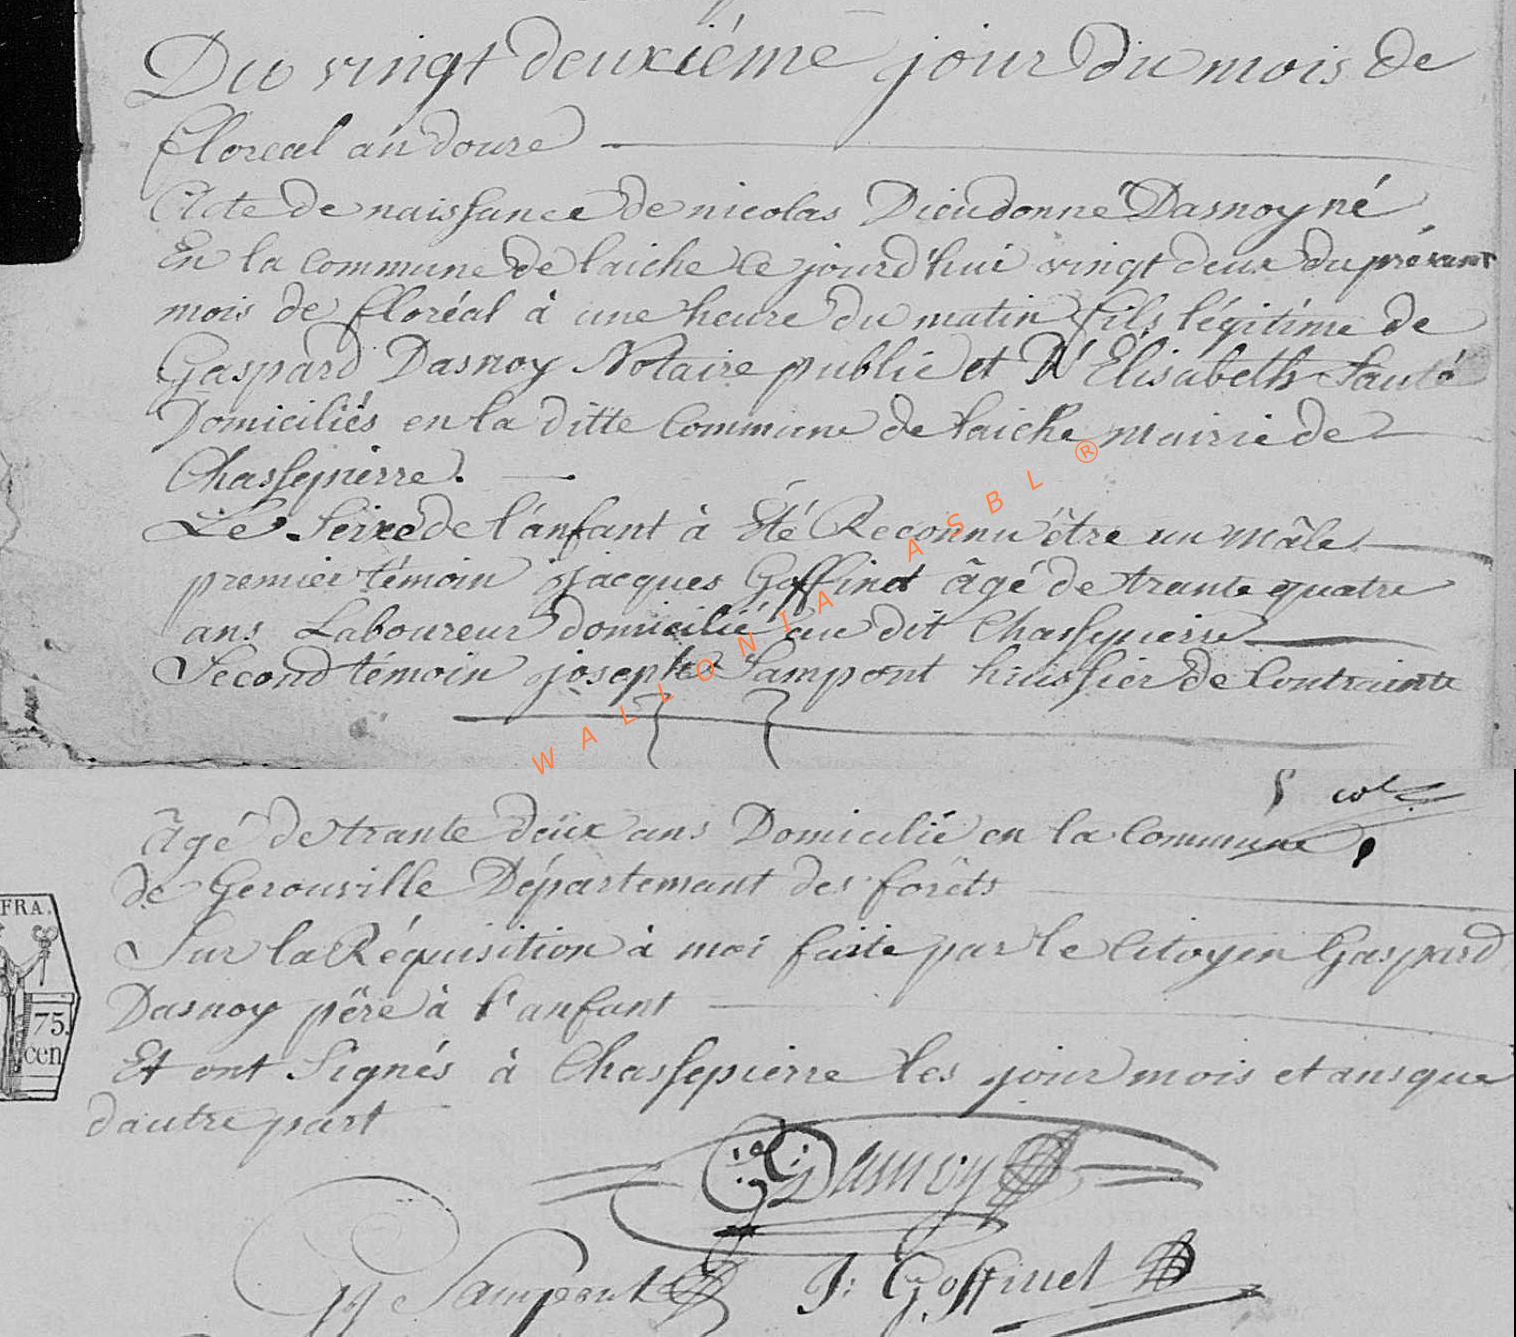 Du vingt deuxiéme jour du mois de
floreal an douze
Acte de naissance de nicolas Dieudonné Dasnoy né
En la commune de laiche ce jourd'hui vingt deux du présant
mois de floréal à une heure du matin fils légitime de
Gaspard Dasnoy Notaire public et D' Élisabeth
Domiciliés en la ditte Commune de laiche mairie de
Chassepierre.
Le Seixe de l'anfant à Été Reconnu être un mâle
premier témoin jacques Goffinet âgé de trante quatre
ans Laboureur domicilié au dit Chassepierre
Second témoin joseph Sampont huissier de Contrainte
WALLONIA ASBL ®
âgé de trante deux ans Domicilié en la Commune
de Gerouville Département des forêts
FRA.
Sur la Réquisition à moi faite par le Citoyen Gaspard
Dasnoy père à l'anfant
75.
cen
Et ont Signés à Chassepierre les jour mois et ans que
dautre part
Dasnoy
Sampont J: Goffinet